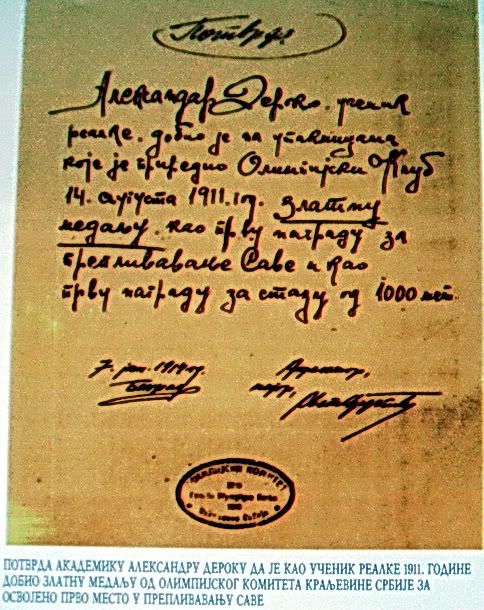 Потврда
Александар Дероко, ученик
реалке, добио је на утакмицама
које је приредио Олимпијски Клуб
14. августа 1911. год. златну
медаљу, као прву награду за
препливавање Саве и као
прву награду за стазу од 1000 мет.
7. јан. 1914 год.
Београд
ОЛИМПИЈСКИ КОМИТЕТ
ПОТВРДА АКАДЕМИКУ АЛЕКСАНДРУ ДЕРОКУ ДА ЈЕ КАО УЧЕНИК РЕАЛКЕ 1911. ГОДИНЕ
ДОБИО ЗЛАТНУ МЕДАЉУ ОД ОЛИМПИЈСКОГ КОМИТЕТА КРАЉЕВИНЕ СРБИЈЕ ЗА
ОСВОЈЕНО ПРВО МЕСТО У ПРЕПЛИВАВАЊУ САВЕ